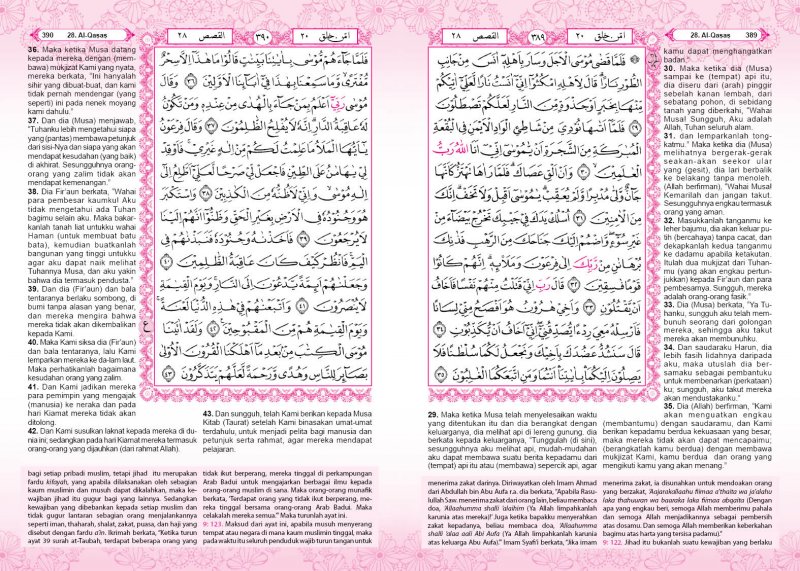 28. Al-Qasas 389
القصص ٢٨
٣٨٩
امن خلق ٢٠
فَلَمَّا قَضٰى مُوْسَى الْاَجَلَ وَسَارَ بِاَهْلِهٖٓ اٰنَسَ مِنْ جَانِبِ
الطُّوْرِ نَارًاۚ قَالَ لِاَهْلِهِ امْكُثُوْٓا اِنِّيْٓ اٰنَسْتُ نَارًا لَّعَلِّيْٓ اٰتِيْكُمْ
مِّنْهَا بِخَبَرٍ اَوْ جَذْوَةٍ مِّنَ النَّارِ لَعَلَّكُمْ تَصْطَلُوْنَ
٢٩ فَلَمَّآ اَتٰىهَا نُوْدِيَ مِنْ شَاطِئِ الْوَادِ الْاَيْمَنِ فِى الْبُقْعَةِ
الْمُبٰرَكَةِ مِنَ الشَّجَرَةِ اَنْ يّٰمُوْسٰٓى اِنِّيْٓ اَنَا اللّٰهُ رَبُّ
الْعٰلَمِيْنَ ٣٠ وَاَنْ اَلْقِ عَصَاكَۗ فَلَمَّا رَاٰهَا تَهْتَزُّ كَاَنَّهَا
جَاۤنٌّ وَّلّٰى مُدْبِرًا وَّلَمْ يُعَقِّبْۗ يٰمُوْسٰٓى اَقْبِلْ وَلَا تَخَفْۗ اِنَّكَ
مِنَ الْاٰمِنِيْنَ ٣١ اُسْلُكْ يَدَكَ فِيْ جَيْبِكَ تَخْرُجْ بَيْضَاۤءَ مِنْ
غَيْرِ سُوْۤءٍ وَّاضْمُمْ اِلَيْكَ جَنَاحَكَ مِنَ الرَّهْبِ فَذٰنِكَ
بُرْهَانٰنِ مِنْ رَّبِّكَ اِلٰى فِرْعَوْنَ وَمَلَا۟ىِٕهٖۗ اِنَّهُمْ كَانُوْا
قَوْمًا فٰسِقِيْنَ ٣٢ قَالَ رَبِّ اِنِّيْ قَتَلْتُ مِنْهُمْ نَفْسًا فَاَخَافُ
اَنْ يَّقْتُلُوْنِ ٣٣ وَاَخِيْ هٰرُوْنُ هُوَ اَفْصَحُ مِنِّيْ لِسَانًا
فَاَرْسِلْهُ مَعِيَ رِدْءًا يُّصَدِّقُنِيْٓ ۖاِنِّيْٓ اَخَافُ اَنْ يُّكَذِّبُوْنِ ٣٤
قَالَ سَنَشُدُّ عَضُدَكَ بِاَخِيْكَ وَنَجْعَلُ لَكُمَا سُلْطٰنًا فَلَا
يَصِلُوْنَ اِلَيْكُمَا ۛبِاٰيٰتِنَا ۛاَنْتُمَا وَمَنِ اتَّبَعَكُمَا الْغٰلِبُوْنَ ٣٥
29. Maka ketika Musa telah menyelesaikan waktu
yang ditentukan itu dan dia berangkat dengan
keluarganya, dia melihat api di lereng gunung, dia
berkata kepada keluarganya, "Tunggulah (di sini),
sesungguhnya aku melihat api, mudah-mudahan
aku dapat membawa suatu berita kepadamu dari
(tempat) api itu atau (membawa) sepercik api, agar
kamu dapat menghangatkan
badan."
30. Maka ketika dia (Musa)
sampai ke (tempat) api itu,
dia diseru dari (arah) pinggir
sebelah kanan lembah, dari
sebatang pohon, di sebidang
tanah yang diberkahi, "Wahai
Musa! Sungguh, Aku adalah
Allah, Tuhan seluruh alam.
31. dan lemparkanlah tong-
katmu." Maka ketika dia (Musa)
melihatnya bergerak-gerak
seakan-akan seekor ular
yang (gesit), dia lari berbalik
ke belakang tanpa menoleh.
(Allah berfirman), "Wahai Musa!
Kemarilah dan jangan takut.
Sesungguhnya engkau termasuk
orang yang aman.
32. Masukkanlah tanganmu ke
leher bajumu, dia akan keluar pu-
tih (bercahaya) tanpa cacat, dan
dekapkanlah kedua tanganmu
ke dadamu apabila ketakutan.
Itulah dua mukjizat dari Tuhan-
mu (yang akan engkau pertun-
jukkan) kepada Fir'aun dan para
pembesarnya. Sungguh, mereka
adalah orang-orang fasik."
33. Dia (Musa) berkata, "Ya Tu-
hanku, sungguh aku telah mem-
bunuh seorang dari golongan
mereka, sehingga aku takut
mereka akan membunuhku.
34. Dan saudaraku Harun, dia
lebih fasih lidahnya daripada
aku, maka utuslah dia ber-
samaku sebagai pembantuku
untuk membenarkan (perkataan)
ku; sungguh, aku takut mereka
akan mendustakanku."
35. Dia (Allah) berfirman, "Kami
akan menguatkan engkau
(membantumu) dengan saudaramu, dan Kami
berikan kepadamu berdua kekuasaan yang besar,
maka mereka tidak akan dapat mencapaimu;
(berangkatlah kamu berdua) dengan membawa
mukjizat Kami, kamu berdua dan orang yang
mengikuti kamu yang akan menang."
menerima zakat darinya. Diriwayatkan oleh Imam Ahmad
dari Abdullah bin Abu Aufa r.a. dia berkata, "Apabila Rasu-
lullah Saw. menerima zakat dari orang lain, beliau membaca
doa, 'Allaahumma shalli 'alaihim (Ya Allah limpahkanlah
karunia atas mereka)!' Juga ketika bapakku menyerahkan
zakat kepadanya, beliau membaca doa, 'Allaahumma
shalli 'alaa aali Abi Aufa (Ya Allah limpahkanlah karunia
atas keluarga Abu Aufa).'" Imam Syafi'i berkata, "Jika imam
menerima zakat, ia disunahkan untuk mendoakan orang
yang berzakat,
apa yang engkau beri, semoga Allah memberimu pahala
dan semoga Allah menjadikannya sebagai pembersih
atas dosamu. Dan semoga Allah memberikan keberkahan
bagimu atas harta yang tersisa padamu)."
9: 122. Jihad itu bukanlah suatu kewajiban yang berlaku
390 28. Al-Qasas
القصص ٢٨
٣٩٠
امن خلق ٢٠
فَلَمَّا جَاۤءَهُمْ مُّوْسٰى بِاٰيٰتِنَا بَيِّنٰتٍ قَالُوْا مَا هٰذَآ اِلَّا سِحْرٌ
مُّفْتَرًى وَّمَا سَمِعْنَا بِهٰذَا فِيْٓ اٰبَاۤىِٕنَا الْاَوَّلِيْنَ ٣٦ وَقَالَ
مُوْسٰى رَبِّيْٓ اَعْلَمُ بِمَنْ جَاۤءَ بِالْهُدٰى مِنْ عِنْدِهٖ وَمَنْ تَكُوْنُ
لَهٗ عَاقِبَةُ الدَّارِۗ اِنَّهٗ لَا يُفْلِحُ الظّٰلِمُوْنَ ٣٧ وَقَالَ فِرْعَوْنُ
يٰٓاَيُّهَا الْمَلَاُ مَا عَلِمْتُ لَكُمْ مِّنْ اِلٰهٍ غَيْرِيْۚ فَاَوْقِدْ
لِيْ يٰهَامٰنُ عَلَى الطِّيْنِ فَاجْعَلْ لِّيْ صَرْحًا لَّعَلِّيْٓ اَطَّلِعُ اِلٰٓى
اِلٰهِ مُوْسٰىۙ وَاِنِّيْ لَاَظُنُّهٗ مِنَ الْكٰذِبِيْنَ ٣٨ وَاسْتَكْبَرَ
هُوَ وَجُنُوْدُهٗ فِى الْاَرْضِ بِغَيْرِ الْحَقِّ وَظَنُّوْٓا اَنَّهُمْ اِلَيْنَا
لَا يُرْجَعُوْنَ ٣٩ فَاَخَذْنٰهُ وَجُنُوْدَهٗ فَنَبَذْنٰهُمْ فِى
الْيَمِّۚ فَانْظُرْ كَيْفَ كَانَ عَاقِبَةُ الظّٰلِمِيْنَ ٤٠
وَجَعَلْنٰهُمْ اَىِٕمَّةً يَّدْعُوْنَ اِلَى النَّارِۚ وَيَوْمَ الْقِيٰمَةِ
لَا يُنْصَرُوْنَ ٤١ وَاَتْبَعْنٰهُمْ فِيْ هٰذِهِ الدُّنْيَا لَعْنَةًۚ
وَيَوْمَ الْقِيٰمَةِ هُمْ مِّنَ الْمَقْبُوْحِيْنَ ٤٢ وَلَقَدْ اٰتَيْنَا
مُوْسَى الْكِتٰبَ مِنْۢ بَعْدِ مَآ اَهْلَكْنَا الْقُرُوْنَ الْاُوْلٰى
بَصَاۤىِٕرَ لِلنَّاسِ وَهُدًى وَّرَحْمَةً لَّعَلَّهُمْ يَتَذَكَّرُوْنَ ٤٣
ع
36. Maka ketika Musa datang
kepada mereka dengan (mem-
bawa) mukjizat Kami yang nyata,
mereka berkata, "Ini hanyalah
sihir yang dibuat-buat, dan kami
tidak pernah mendengar (yang
seperti) ini pada nenek moyang
kami dahulu."
37. Dan dia (Musa) menjawab,
"Tuhanku lebih mengetahui siapa
yang (pantas) membawa petunjuk
dari sisi-Nya dan siapa yang akan
mendapat kesudahan (yang baik)
di akhirat. Sesungguhnya orang-
orang yang zalim tidak akan
mendapat kemenangan."
38. Dia Fir'aun berkata, "Wahai
para pembesar kaumku! Aku
tidak mengetahui ada Tuhan
bagimu selain aku. Maka bakar-
kanlah tanah liat untukku wahai
Haman (untuk membuat batu
bata), kemudian buatkanlah
bangunan yang tinggi untukku
agar aku dapat naik melihat
Tuhannya Musa, dan aku yakin
bahwa dia termasuk pendusta."
39. Dan dia (Fir'aun) dan bala
tentaranya berlaku sombong, di
bumi tanpa alasan yang benar,
dan mereka mengira bahwa
mereka tidak akan dikembalikan
kepada Kami.
40. Maka Kami siksa dia (Fir'aun)
dan bala tentaranya, lalu Kami
lemparkan mereka ke da-lam laut.
Maka perhatikanlah bagaimana
kesudahan orang yang zalim.
41. Dan Kami jadikan mereka
para pemimpin yang mengajak
(manusia) ke neraka dan pada
hari Kiamat mereka tidak akan
ditolong.
42. Dan Kami susulkan laknat kepada mereka di du-
nia ini, sedangkan pada hari Kiamat mereka termasuk
orang-orang yang dijauhkan (dari rahmat Allah).
43. Dan sungguh, telah Kami berikan kepada Musa
Kitab (Taurat) setelah Kami binasakan umat-umat
terdahulu, untuk menjadi pelita bagi manusia dan
petunjuk serta rahmat, agar mereka mendapat
pelajaran.
bagi setiap pribadi muslim, tetapi jihad itu merupakan
fardu kifayah, yang apabila dilaksanakan oleh sebagian
kaum muslimin dan musuh dapat dikalahkan, maka ke-
wajiban jihad itu gugur bagi yang lainnya. Sedangkan
kewajiban yang dibebankan kepada setiap muslim dan
tidak gugur lantaran sebagian orang menjalankannya
seperti iman, thaharah, shalat, zakat, puasa, dan haji yang
disebut dengan fardu a'in. Ikrimah berkata, "Ketika turun
ayat 39 surah at-Taubah, terdapat beberapa orang yang
tidak ikut berperang, mereka tinggal di perkampungan
Arab Badui untuk mengajarkan berbagai ilmu kepada
orang-orang muslim di sana. Maka orang-orang munafik
berkata, 'Terdapat orang yang tidak ikut berperang, me-
reka tinggal bersama orang-orang Arab Badui. Maka
celakalah mereka semua.'" Maka turunlah ayat ini.
9: 123. Maksud dari ayat ini, apabila musuh menyerang
tempat atau negara di mana kaum muslimin tinggal, maka
pada waktu itu seluruh penduduk wajib turun tangan untuk